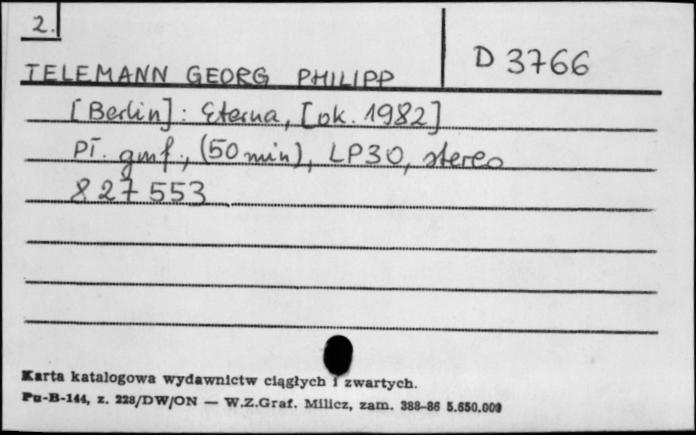 2.
D 3766
TELEMANN GEORG PHILIPP
[Berlin]: Eterna, [ok. 1982]
Pł. gmf., (50 min), LP30, stereo
827 553
Karta katalogowa wydawnictw ciągłych i zwartych.
Pu-B-144, z. 228/DW/ON — W.Z.Graf. Milicz, zam. 388-86 5.650.000